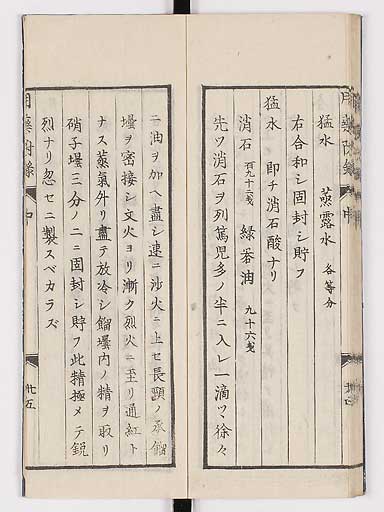 猛水　蒸露水　各等分
右合和シ固封シ貯フ
猛水　即チ消石酸ナリ
消石　百九十二戔　緑礬油　九十六戔
先ツ消石ヲ列篤児多ノ半ニ入レ一滴ツヽ徐々
ニ油ヲ加ヘ盡シ速ニ沙火ニ上セ長頸ノ承餾
壜ヲ密接シ文火ヨリ漸ク烈火ニ至リ通紅ト
ナス蒸氣外リ盡テ放冷シ餾壜内ノ精ヲ取リ
硝子壜三分ノ二ニ固封シ貯フ此精極メテ鋭
烈ナリ忽セニ製スベカラズ
用藥附録　中　廿五